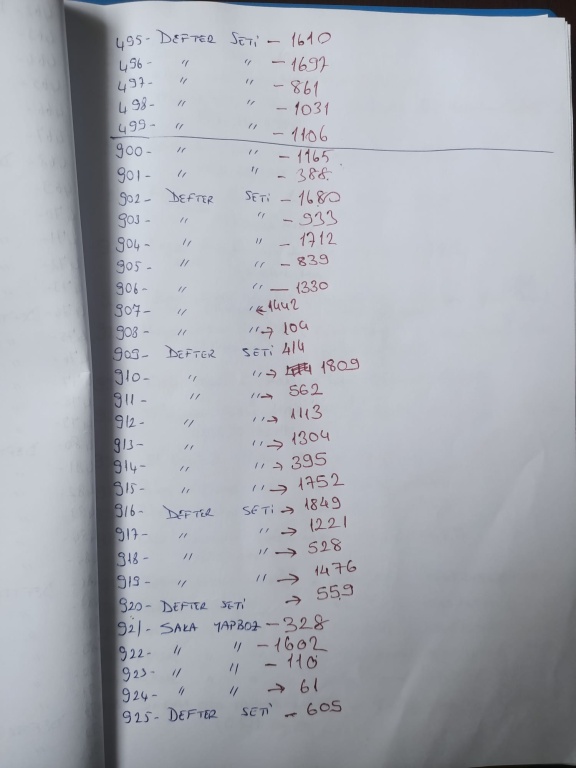 495- DEFTER SETİ - 1610
496- " " - 1697
497- " " - 861
498- " " - 1031
499- " " - 1106
900- " " - 1165
901- " " - 388
902- DEFTER SETİ - 1680
903- " " - 933
904- " " - 1712
905- " " - 839
906- " " - 1330
907- " " 1442
908- " " → 104
909- DEFTER SETİ 414
910- " " → 1809
911- " " → 562
912- " " → 1113
913- " " → 1304
914- " " → 395
915- " " → 1752
916- DEFTER SETİ → 1849
917- " " → 1221
918- " " → 528
919- " " → 1476
920- DEFTER SETİ → 559
921- SAKA YAPBOZ - 328
922- " " - 1602
923- " " - 110
924- " " → 61
925- DEFTER SETİ - 605